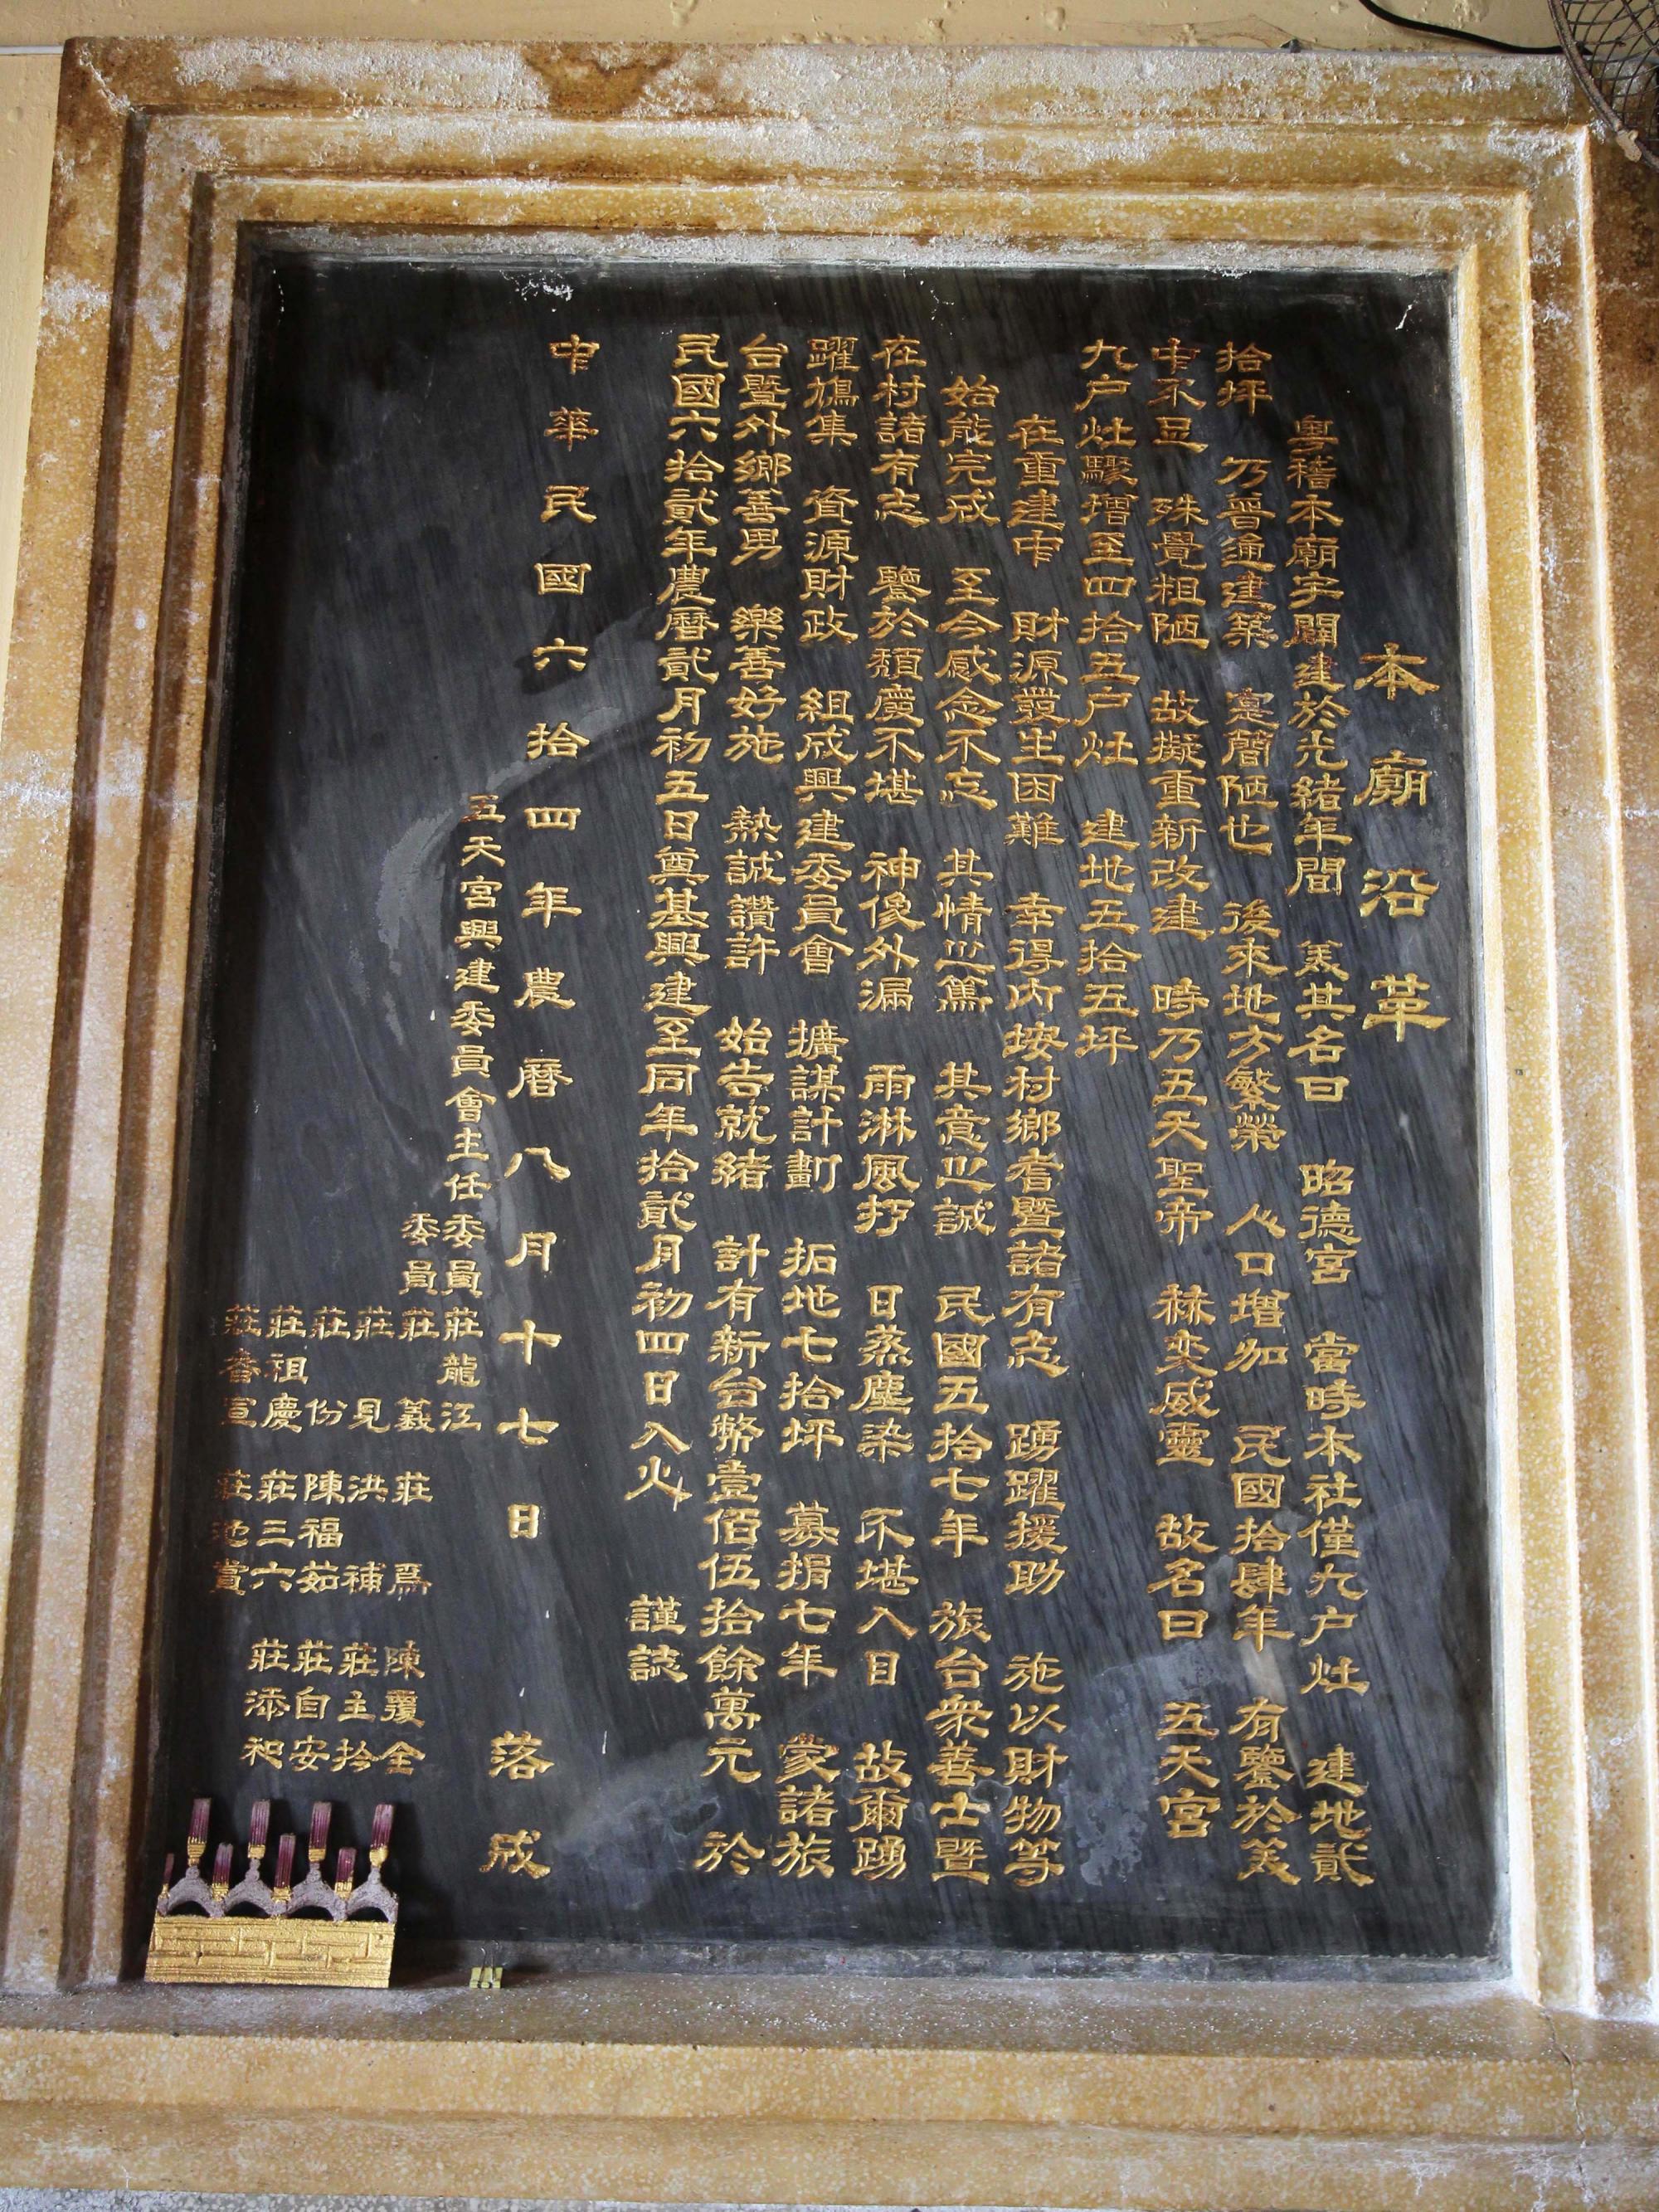 本廟沿革
粵稽本廟宇闢建於光緒年間 美其名曰 昭德宮 當時本社僅九户灶 建地貳
拾坪 乃晉逾建築 寔簡陋也 後來地方繁榮 人口增加 民國拾肆年 有鑒於美
中不足 殊覺粗陋 故擬重新改建 時乃五天聖帝 赫奕威靈 故名曰 五天宮
九户灶驟增至四拾五户灶 建地五拾五坪
在重建中 財源發生困難 幸得內垵村鄉耆暨諸有志 踴躍援助 施以財物等
始能完成 至今感念不忘 其情之篤 其意之誠 民國五拾七年 旅台眾善士暨
在村諸有志 鑒於頹廢不堪 神像外漏 雨淋風打 日蒸塵染 不堪入目 故爾踴
躍鳩集 資源財政 組成興建委員會 擴謀計劃 拓地七拾坪 募捐七年 蒙諸旅
台暨外鄉善男 樂善好施 熱誠讚許 始告就緒 計有新台幣壹佰伍拾餘萬元 於
民國六拾貳年農曆貳月初五日奠基興建至同年拾貳月初四日入火 謹誌
中華民國六拾四年農曆八月十七日 落成
五天宮興建委員會主任委員莊龍江
委員莊義 莊為 陳覆全
莊見 洪補 莊主拎
莊份 陳福茹 莊自安
莊祖慶 莊三六 莊添和
莊番宣 莊池賞